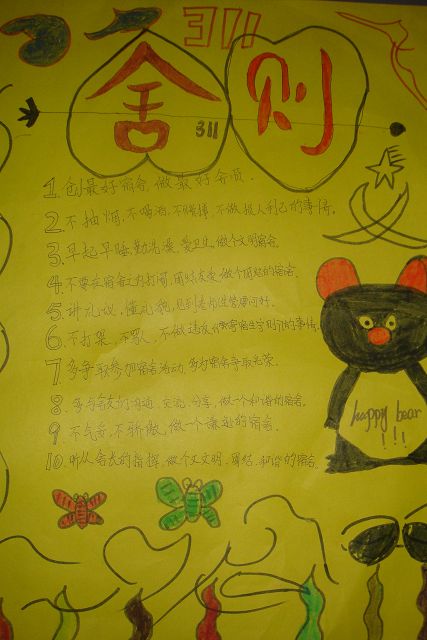 311
舍则
311
1 创最好宿舍,做最好舍员.
2. 不抽烟,不喝酒,不赌博,不做损人利己的事情.
3. 早起早睡,勤洗澡,爱卫生,做个文明宿舍.
4. 不要在宿舍之内打闹,团结友爱,做个团结的宿舍.
5. 讲礼仪,懂礼貌,见到老师生管要问好.
6. 不打架,不骂人,不做违反学校寄宿生守则的事情.
7 多争取参加宿舍活动,多为宿舍争取光荣.
8. 多与舍友们沟通,交流,分享,做一个和谐的宿舍.
9 不气馁,不骄傲,做一个谦逊的宿舍.
10. 听从舍长的指挥,做个又文明,团结,和谐的宿舍.
happy bear
!!!